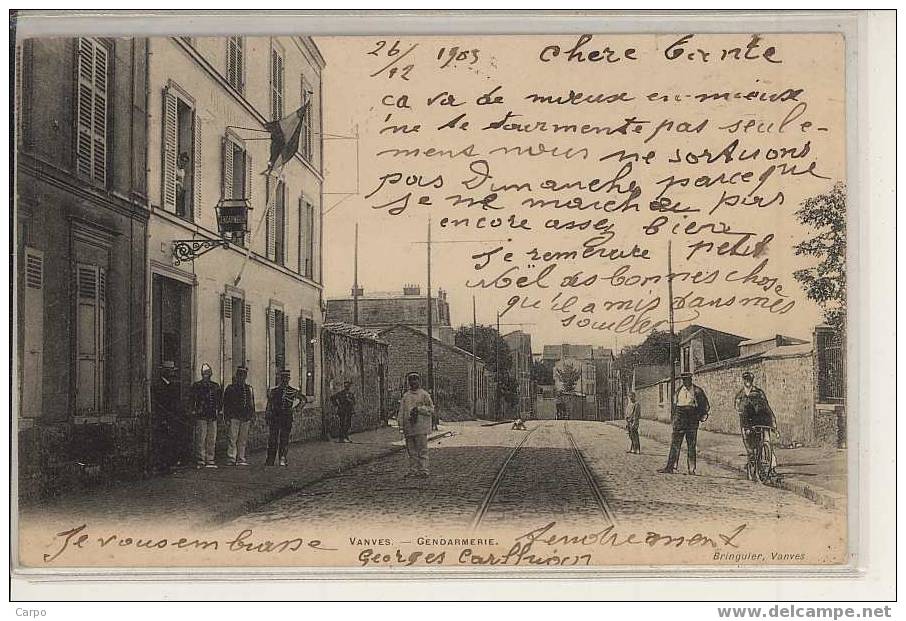 26/12 1903 chere tante
ca va de mieux en mieux
ne te tourmente pas seule-
ment nous ne sortirons
pas Dimanche parceque
je ne marche pas
encore assez bien
je remercie petit
Noël des bonnes chose
qu'il a mis dans mes
soulier
GENDARMERIE
VANVES. — GENDARMERIE.
Je vous embrasse tendrement
Georges
Bringuier, Vanves
Carpo
www.delcampe.net